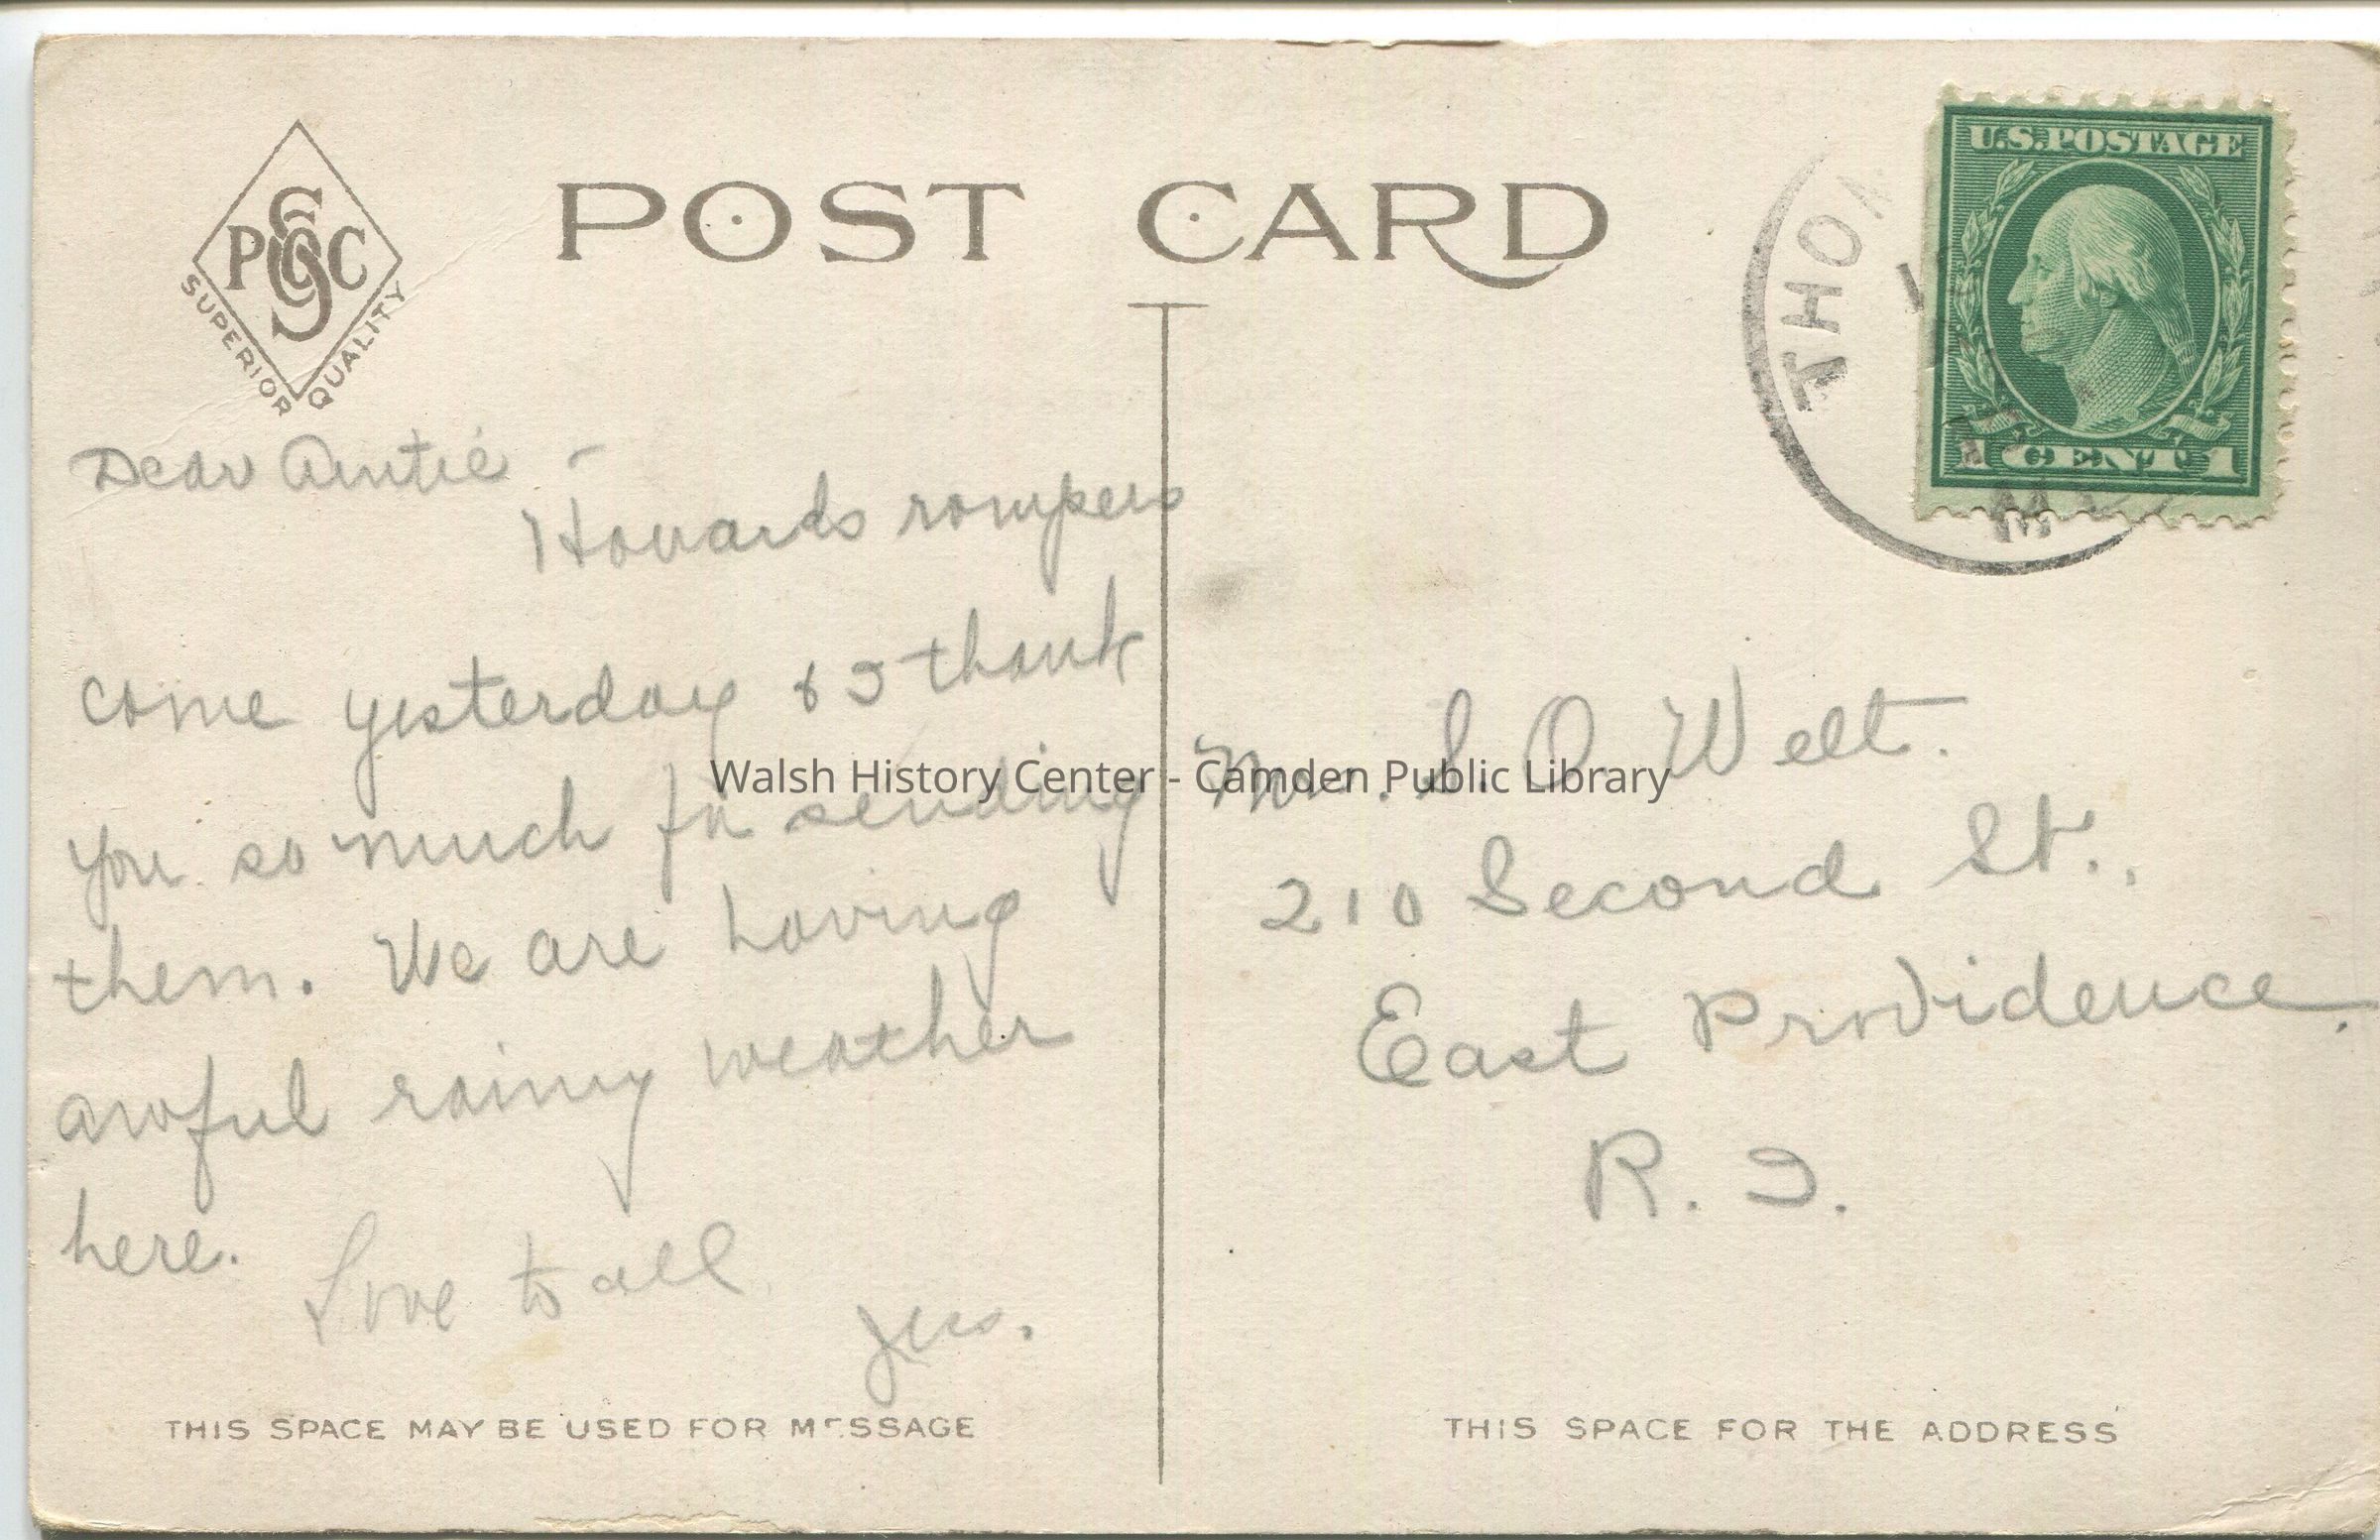 POST CARD
PSC
SUPERIOR QUALITY
U.S. POSTAGE
1 CENT 1
THO
Dear Auntie -
Howards rompers
come yesterday & I thank
you so much for sending
them. We are having
awful rainy weather
here.
Love to all
Jess.
Walsh History Center - Camden Public Library
S. O. Welt.
210 Second St.,
East Providence,
R. I.
THIS SPACE MAY BE USED FOR MESSAGE
THIS SPACE FOR THE ADDRESS